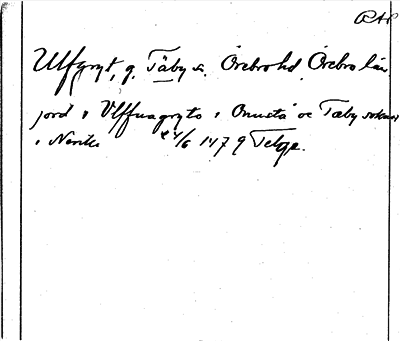 RAP
Ulfgryt, g. Täby s. Örebro hd Örebro län
jord i Vlffuagryto i Onusta oc Tæby sokn
i Nerike 24/6 1479 Telge.